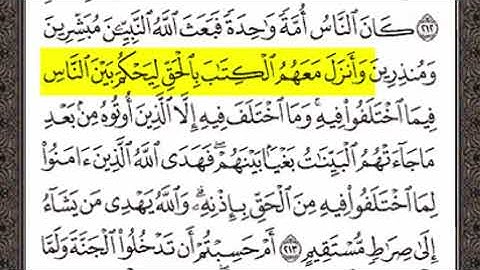 ٢١٢ كَانَ النَّاسُ أُمَّةً وَٰحِدَةً فَبَعَثَ اللَّهُ النَّبِيِّـۧنَ مُبَشِّرِينَ
وَمُنذِرِينَ وَأَنزَلَ مَعَهُمُ الْكِتَٰبَ بِالْحَقِّ لِيَحْكُمَ بَيْنَ النَّاسِ
فِيمَا اخْتَلَفُوا۟ فِيهِ ۚ وَمَا اخْتَلَفَ فِيهِ إِلَّا الَّذِينَ أُوتُوهُ مِنۢ بَعْدِ
مَا جَآءَتْهُمُ الْبَيِّنَٰتُ بَغْيًۢا بَيْنَهُمْ ۖ فَهَدَى اللَّهُ الَّذِينَ ءَامَنُوا۟
لِمَا اخْتَلَفُوا۟ فِيهِ مِنَ الْحَقِّ بِإِذْنِهِۦ ۗ وَاللَّهُ يَهْدِى مَن يَشَآءُ
إِلَىٰ صِرَٰطٍ مُّسْتَقِيمٍ ٢١٣ أَمْ حَسِبْتُمْ أَن تَدْخُلُوا۟ الْجَنَّةَ وَلَمَّا